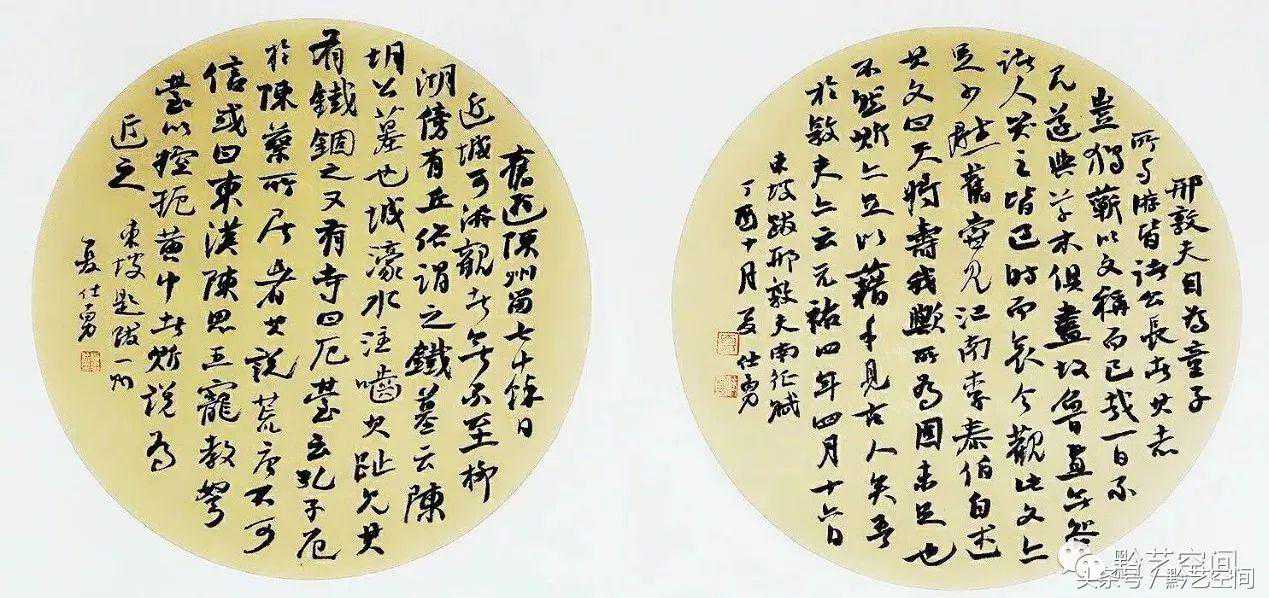 邢敦夫自為童子
所与游皆諸公長者其志
豈獨蘄以文稱而已哉一日不
見遂與草木俱盡故魯直無咎
諸人哭之皆過時而哀今觀此文亦
足少慰舊嘗見江南李泰伯自述
其文曰天將壽我歟所為固未足也
不然斯亦足以藉手見古人矣吾
於敦夫亦云元祐四年四月十六日
東坡跋邢敦夫南征賦
丁酉十月夏仕勇
舊遊陳州留七十餘日
近城可游觀者無不至柳
湖傍有丘俗謂之鐵墓云陳
胡公墓也城濠水注嚙其趾見其
有鐵錮之又有寺曰厄臺云孔子厄
於陳蔡所居者其說荒唐不可
信或曰東漢陳愍王寵教弩
臺以控扼黃巾者斯說為
近之
東坡題跋一則
夏仕勇
黔艺空间
头条号/黔艺空间